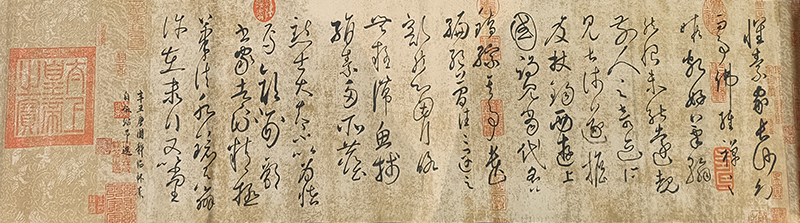 懷素家長沙幼
而事佛經禪之
暇頗好筆翰
然恨未能遠覩
前人之奇迹所
見甚淺遂擔
笈杖錫西遊上
國謁見當代名公
錯綜其事遺
編絕簡往往遇之
豁然心胸略
無疑滯魚牋
絹素多所塵
點士大夫不以為怪
焉顏刑部
書家者流精極
筆法水鏡之辨
許在末行又以尚
辛丑臨懷素
自敘帖節選
太上皇帝之寶